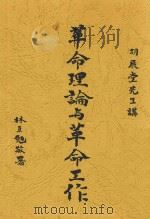 胡展堂先生講
革命理論与革命工作
林直勉敬署